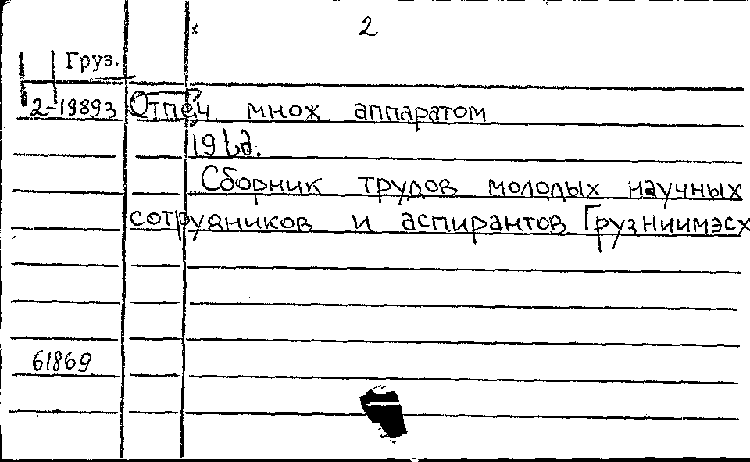 2
Груз.
2-19893 Отпеч множ аппаратом
19 სმ.
Сборник трудов молодых научных
сотрудников и аспирантов Грузниимэсх
61869